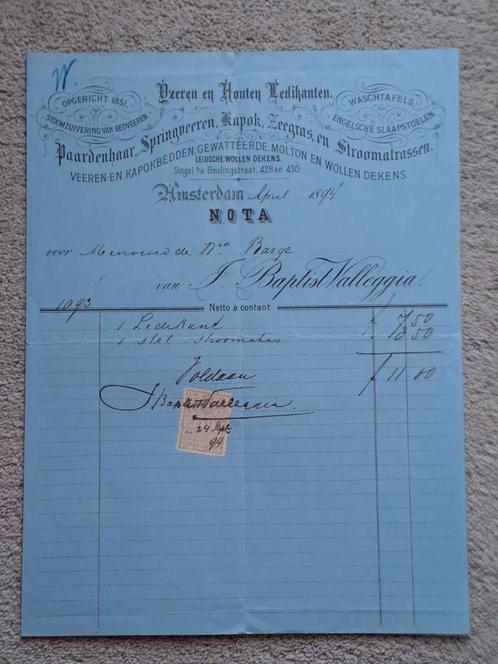 W.
Yzeren en Houten Ledikanten.
OPGERICHT 1851.
STOOMZUIVERING VAN BEDVEEREN.
WASCHTAFELS.
ENGELSCHE SLAAPSTOELEN.
Paardenhaar, Springveeren, Kapok, Zeegras, en Stroomatrassen.
VEEREN-EN KAPOKBEDDEN, GEWATTEERDE, MOLTON EN WOLLEN DEKENS.
LEIDSCHE WOLLEN DEKENS.
Singel h/d Beulingstraat, 428 en 430.
Amsterdam April 1894
NOTA
voor Mevrouw de Barge
van J. Baptist Valleggia.
1893
Netto à contant.
1 Ledikant f 7 50
1 stel Stroomatras 3 50
Voldaan f 11 00
J Baptist Valleggia
24 Apl
94